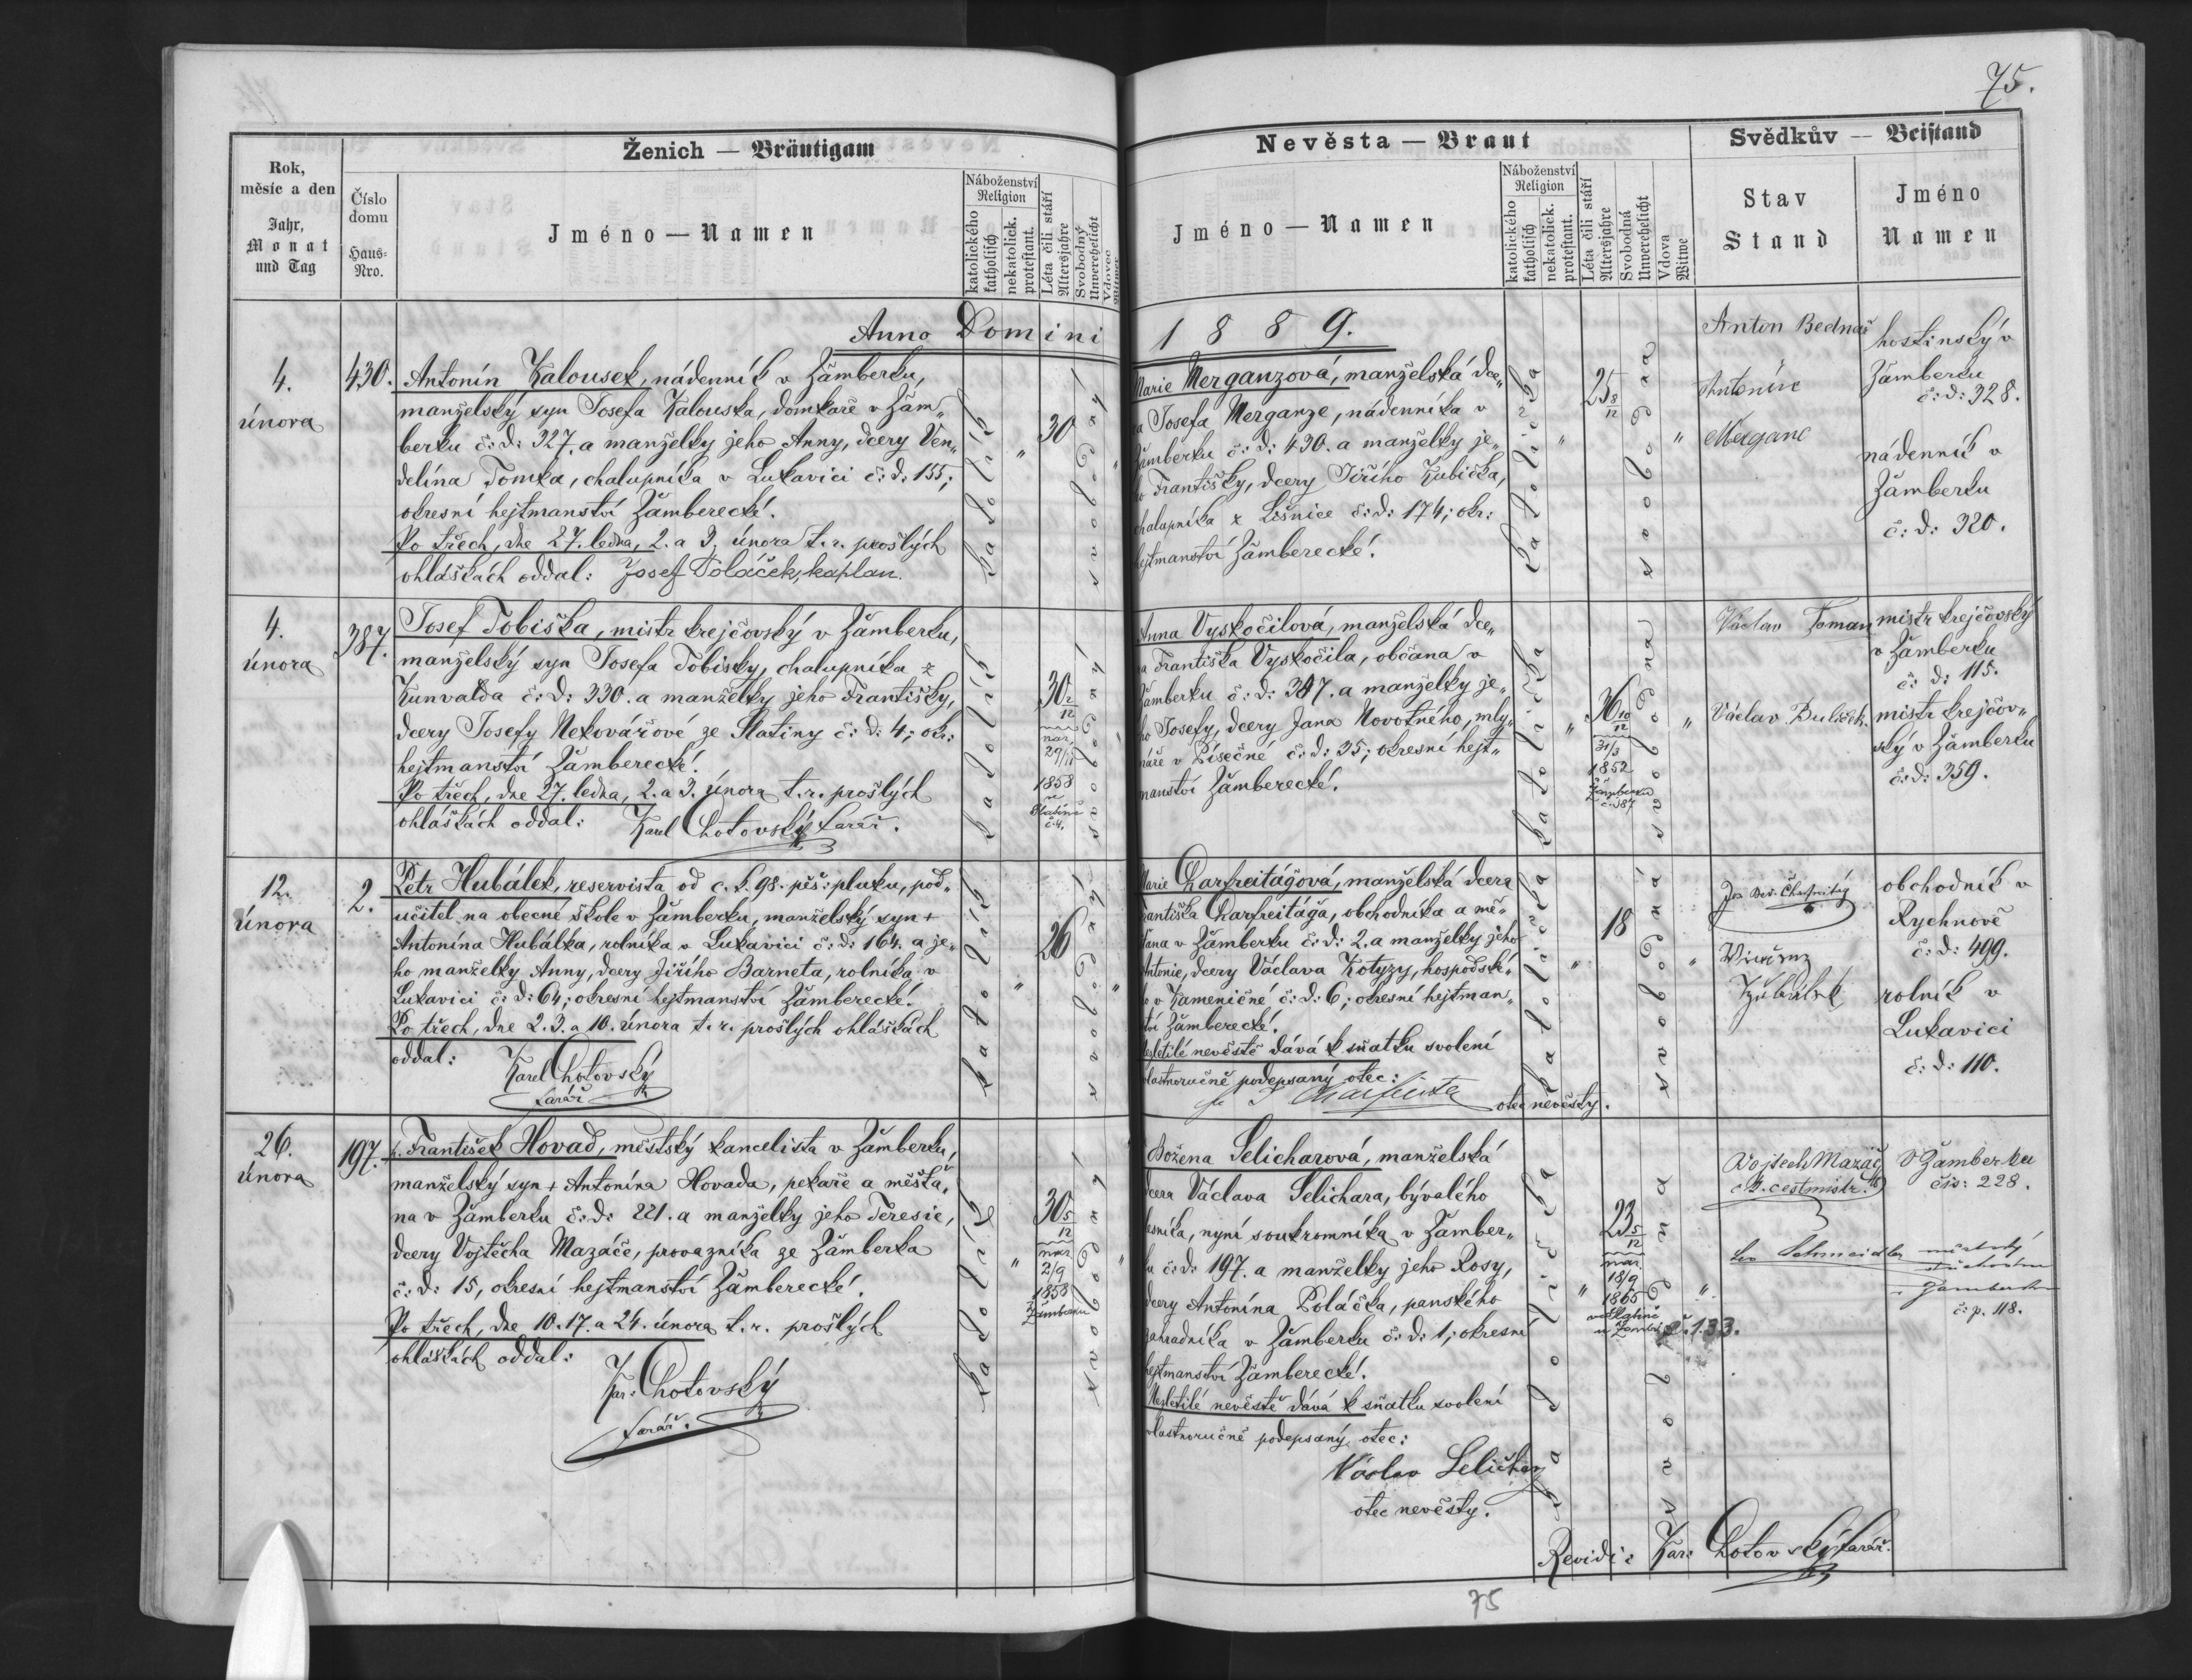 75.
Rok,
měsíc a den
Jahr,
Monat
und Tag
Ženich — Bräutigam
Číslo
domu
Haus-
Nro.
Jméno — Namen
Náboženství
Religion
katolického
katholisch
nekatolick.
protestant.
Léta čili stáří
Altersjahre
Svobodný
Unverehelicht
Vdovec
Nevěsta — Braut
Jméno — Namen
Náboženství
Religion
katolického
katholisch
nekatolick.
protestant.
Léta čili stáří
Altersjahre
Svobodná
Unverehelicht
Vdova
Witwe
Svědkův — Beistand
Stav
Stand
Jméno
Namen
Anno Domini 1889.
4.
února
430.
Antonín Kalousek, nádenník v Žamberku,
manželský syn Josefa Kalouska, domkaře v Žam„
berku č: d: 327. a manželky jeho Anny, dcery Ven„
delína Tomka, chalupníka v Lukavici č: d: 155;
okresní hejtmanství Žamberecké.
Po třech, dne 27. ledna, 2. a 3. února t. r. prošlých
ohláškách oddal: Josef Poláček, kaplan.
katolík
"
30
svobodný
"
Marie Merganzová, manželská dce„
ra Josefa Merganze, nádenníka v
Žamberku č: d: 430. a manželky je„
ho Františky, dcery Jiřího Kubíčka,
chalupníka z Lišnice č: d: 174; okr:
hejtmanství Žamberecké.
katolička
"
25 8/12
svobodna
"
Anton Bednař
Antonín
Merganc
hostinský v
Žamberku
č: d: 328.
nádenník v
Žamberku
č: d: 320.
4.
února
387.
Josef Tobiška, mistr krejčovský v Žamberku,
manželský syn Josefa Tobišky, chalupníka z
Kunvalda č: d: 330. a manželky jeho Františky,
dcery Josefy Nekovářové ze Slatiny č: d: 4; okr:
hejtmanství Žamberecké.
Po třech, dne 27. ledna, 2. a 3. února t. r. prošlých
ohláškách oddal: Karel Chotovský farář.
katolík
30 2/12
nar.
29/11
1858
v
Slatině
č. 4.
svobodný
Anna Vyskočilová, manželská dce„
ra Františka Vyskočila, občana v
Žamberku č: d: 387. a manželky je„
ho Josefy, dcery Jana Novotného, mly„
náře v Písečné č: d: 35; okresní hejt„
manství Žamberecké.
katolička
"
36 10/12
31/3
1852
Žamberku
č. 387
svobodna
"
Václav Toman
Václav Buliček.
mistr krejčovský
v Žamberku
č: d: 115.
mistr krejčov„
ský v Žamberku
č: d: 359.
12.
února
2.
Petr Hubálek, reservista od c. k. 98. pěš: pluku, pod„
učitel na obecné škole v Žamberku, manželský syn +
Antonína Hubálka, rolníka v Lukavici č: d: 164. a je„
ho manželky Anny, dcery Jiřího Barneta, rolníka v
Lukavici č: d: 64; okresní hejtmanství Žamberecké.
Po třech, dne 2. 3. a 10. února t. r. prošlých ohláškách
oddal: Karel Chotovský
farář
katolík
"
26
svobodný
"
Marie Charfreitágová, manželská dcera
Františka Charfreitága, obchodníka a mě„
šťana v Žamberku č: d: 2. a manželky jeho
Antonie, dcery Václava Kotyzy, hospodské„
ho v Kameničné č: d: 6; okresní hejtman„
ství Žamberecké.
Nezletilé nevěstě dává k sňatku svolení
vlastnoručně podepsaný otec:
otec nevěsty.
katolička
"
18
svobodná
"
Hubálek
obchodník v
Rychnově
č: d: 409.
rolník v
Lukavici
č: d: 110.
26.
února
197.
František Hovad, městský kancelista v Žamberku,
manželský syn + Antonína Hovada, pekaře a měšťa„
na v Žamberku č: d: 221. a manželky jeho Teresie,
dcery Vojtěcha Mazáče, provazníka ze Žamberka
č: d: 15, okresní hejtmanství Žamberecké.
Po třech, dne 10. 17. a 24. února t. r. prošlých
ohláškách oddal:
Kar: Chotovský
farář.
katolík
"
30 5/12
nar
2/9
1858
Žamberku
svobodný
"
Božena Selicharová, manželská
dcera Václava Selichara, bývalého
lesníka, nyní soukromníka v Žamber„
ku č: d: 197. a manželky jeho Rosy,
dcery Antonína Poláčka, panského
zahradníka v Žamberku č: d: 1; okresní
hejtmanství Žamberecké.
Nezletilé nevěstě dává k sňatku svolení
vlastnoručně podepsaný otec:
Václav Selichar
otec nevěsty.
katolička
"
23 5/12
nar.
18/9
1865
ve Slatině
u Žamb. č. 133.
svobodna
"
Vojtěch Mazáč
c. k. cestmistr.
Leo Schmeidler
V Žamberku
čís: 228.
městský
v Žamberku
č. p. 118.
Revidi: Kar: Chotovský farář.
75